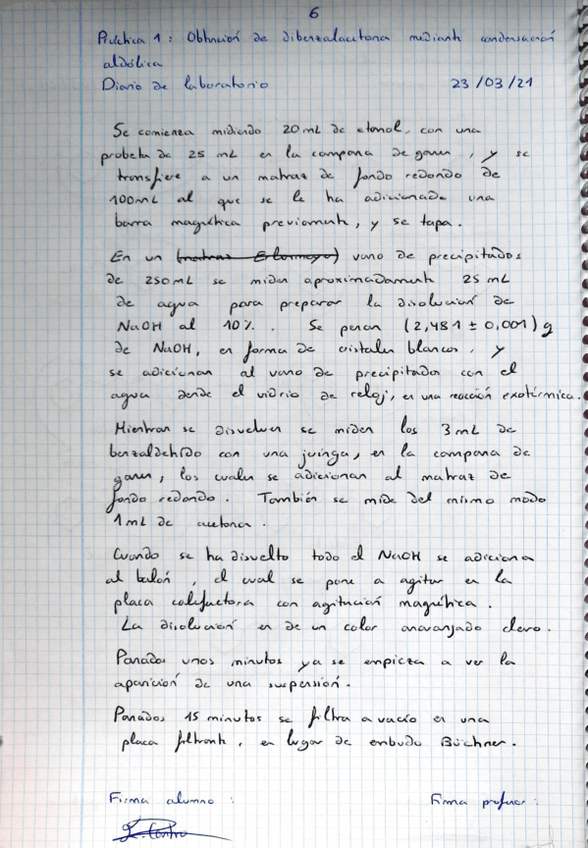 6
Práctica 1: Obtención de dibenzalacetona mediante condensación
aldólica
Diario de laboratorio 23/03/21
Se comienza midiendo 20 mL de etanol, con una
probeta de 25 mL en la campana de gases, y se
transfiere a un matraz de fondo redondo de
100mL al que se le ha adicionado una
barra magnética previamente, y se tapa.
En un (matraz Erlenmeyer) vaso de precipitados
de 250mL se miden aproximadamente 25 mL
de agua para preparar la disolución de
NaOH al 10%. Se pesan (2,481 ± 0,001) g
de NaOH, en forma de cristales blancos, y
se adicionan al vaso de precipitados con el
agua desde el vidrio de reloj, es una reacción exotérmica.
Mientras se disuelven se miden los 3 mL de
benzaldehído con una jeringa, en la campana de
gases, los cuales se adicionan al matraz de
fondo redondo. También se mide del mismo modo
1 mL de acetona.
Cuando se ha disuelto todo el NaOH se adiciona
al balón, el cual se pone a agitar en la
placa calefactora con agitación magnética.
La disolución es de un color anaranjado claro.
Pasados unos minutos ya se empieza a ver la
aparición de una suspensión.
Pasados 15 minutos se filtra a vacío en una
placa filtrante, en lugar de embudo Büchner.
Firma alumno: Firma profesor: